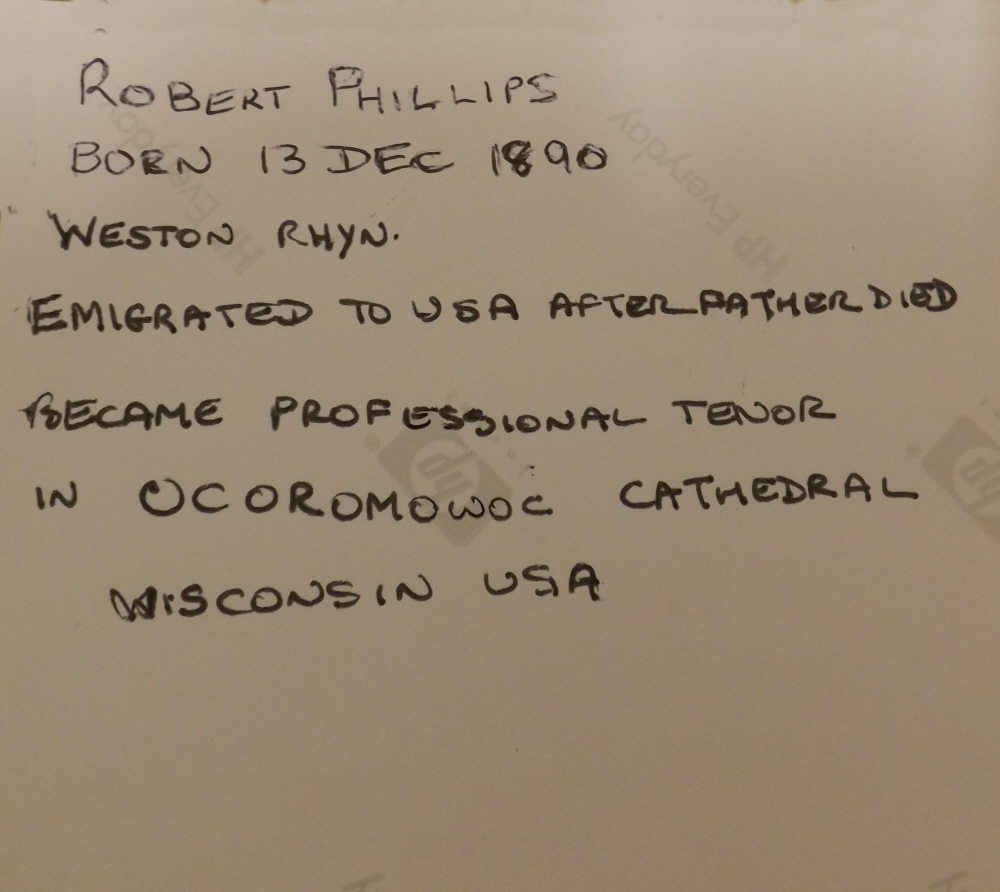 ROBERT PHILLIPS
BORN 13 DEC 1890
WESTON RHYN.
EMIGRATED TO USA AFTER FATHER DIED
BECAME PROFESSIONAL TENOR
IN OCOROMOWOC CATHEDRAL
WISCONSIN USA
HP Everyday
HP Everyday
hp
hp